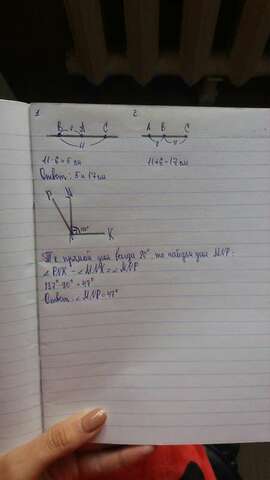 1 2
B 6 A C A B C
11 6 11
11-6=5 см 11+6=17 см
Ответ: 5 и 17 см
P M
K
Т.к прямой угол всегда 90°, то найдём угол MNP:
∠PNK - ∠MNK = ∠MNP
137°-90°=47°
Ответ: ∠MNP=47°